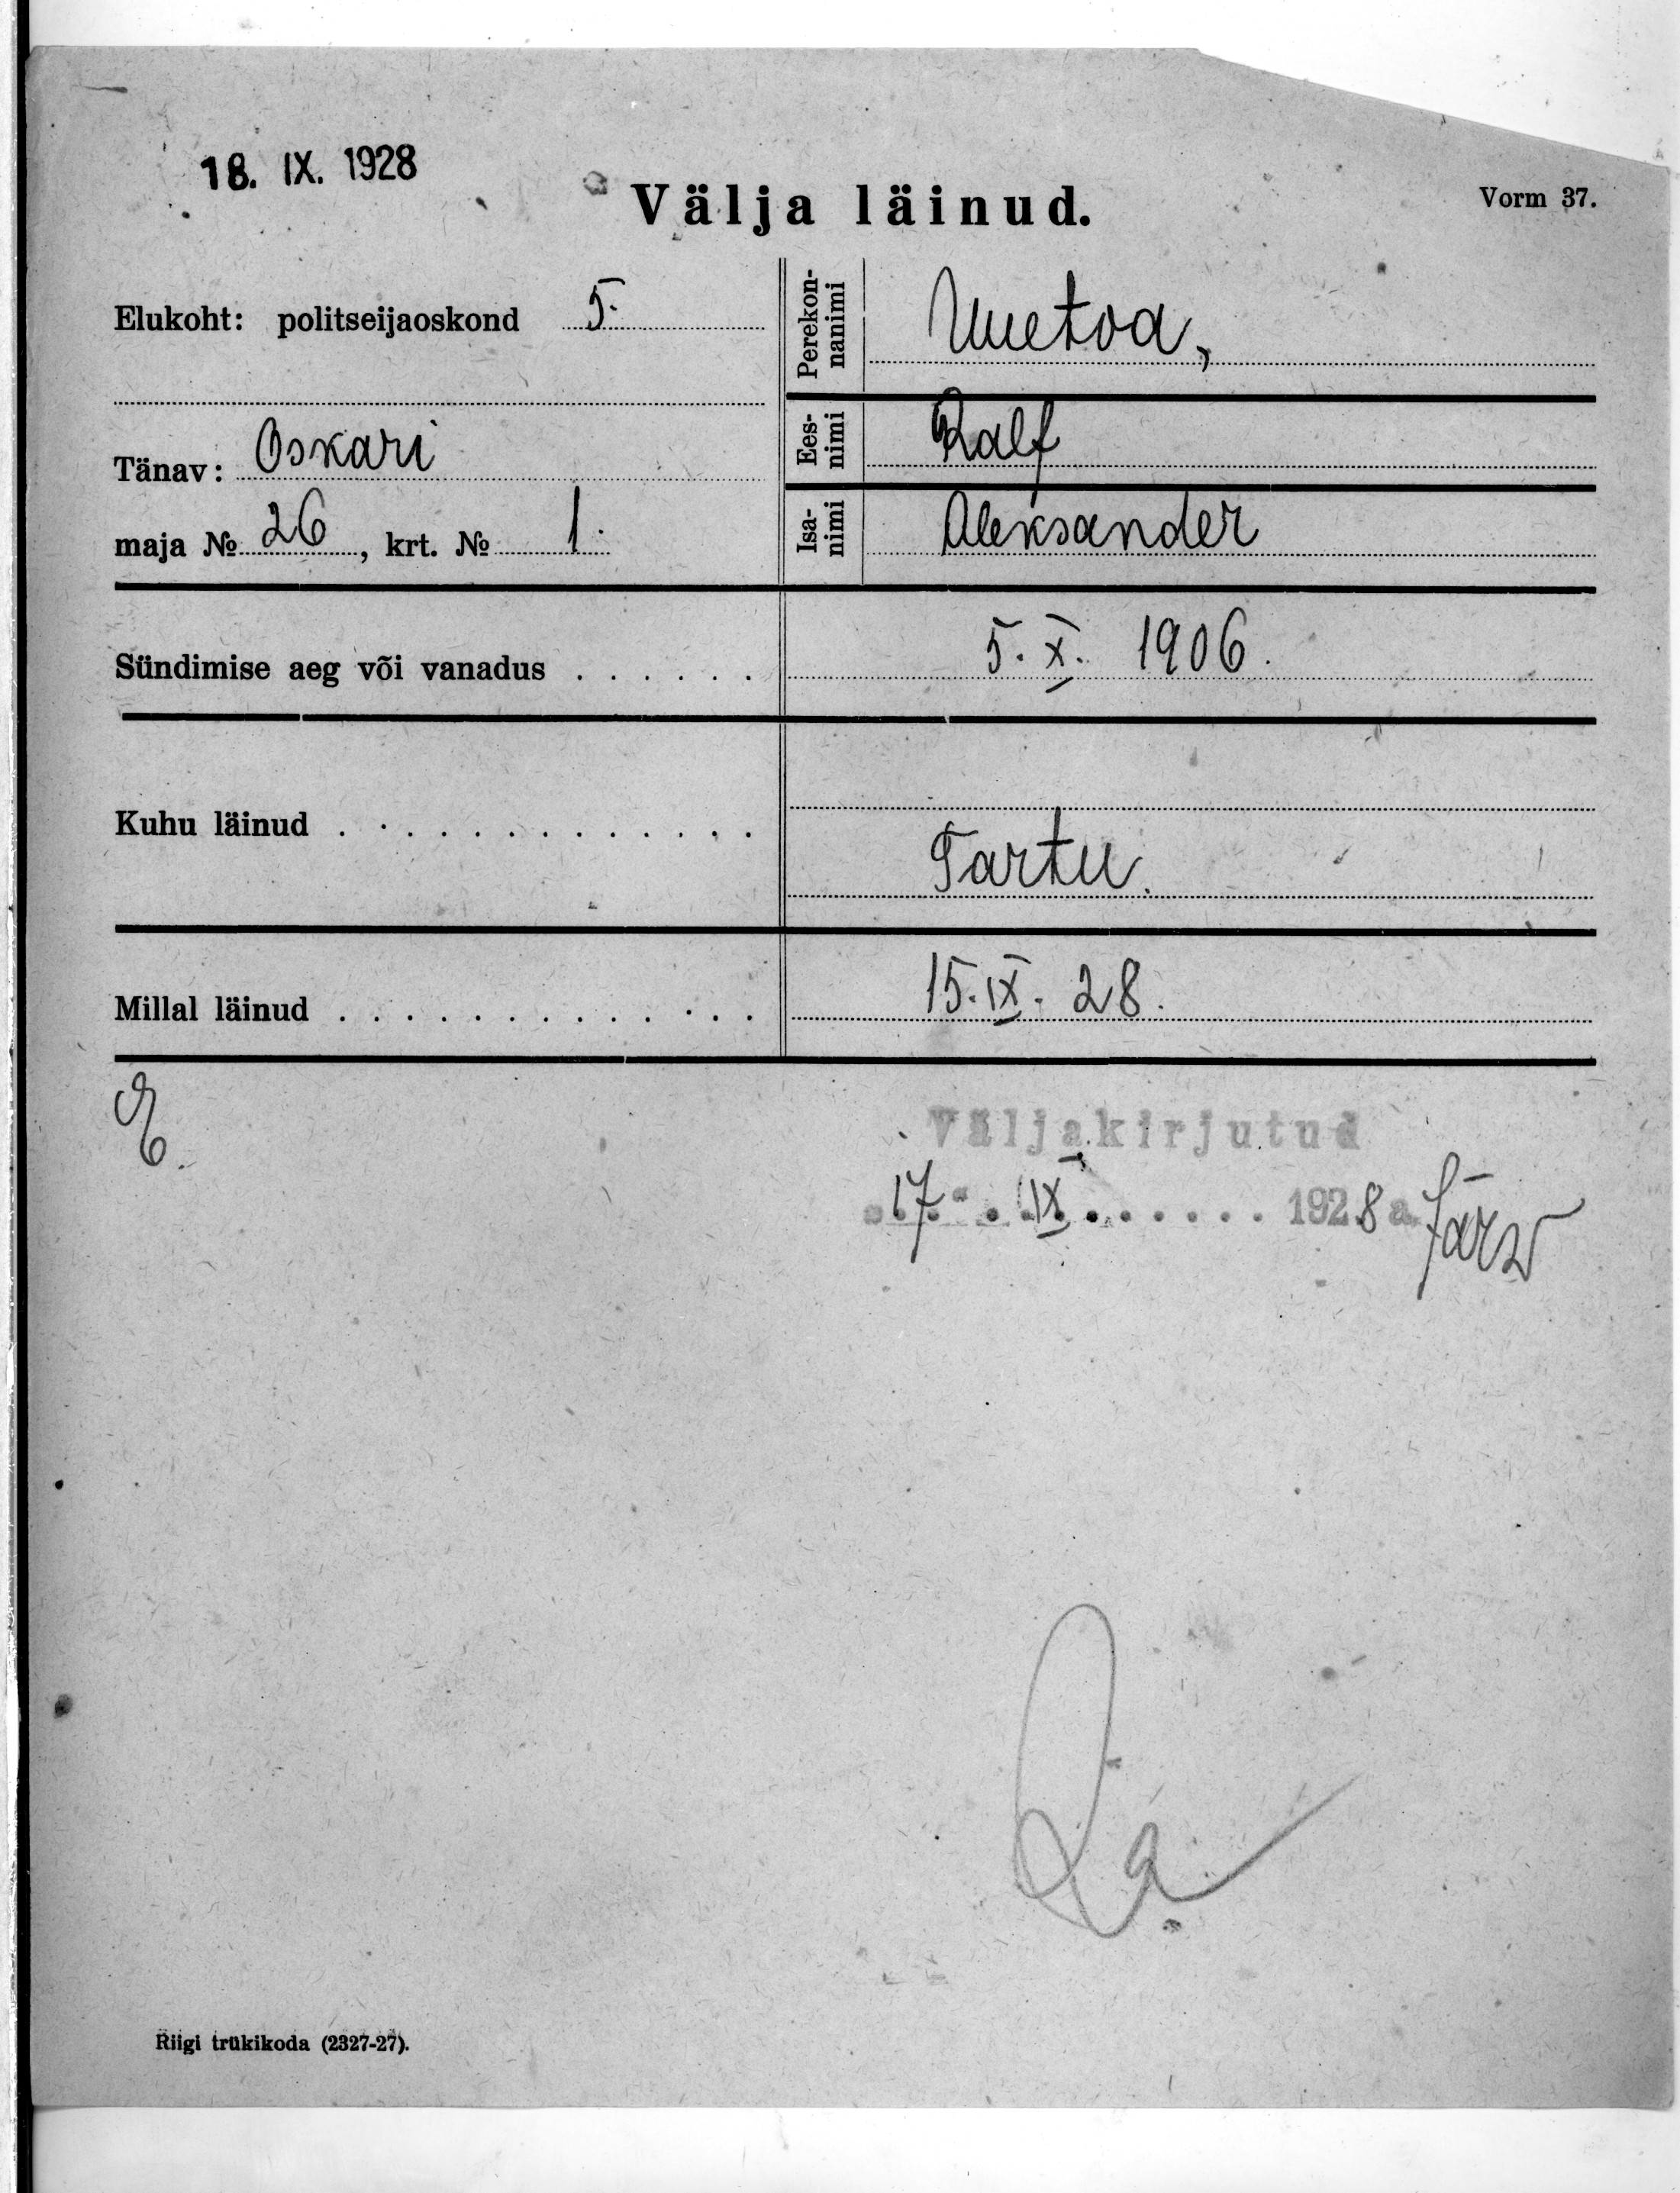 18. IX. 1928
Välja läinud.
Vorm 37.
Elukoht: politseijaoskond 5.
Tänav: Oskari
maja № 26, krt. № 1.
Perekon-
nanimi
Uuetoa,
Ees-
nimi
Ralf
Isa-
nimi
Aleksander
Sündimise aeg või vanadus . . . . . . 5. X. 1906.
Kuhu läinud . . . . . . . . . . . . . Tartu.
Millal läinud . . . . . . . . . . . . . 15. IX. 28.
Väljakirjutud
17. IX . . . . . . 1928 a. Järw
Riigi trükikoda (2327-27).